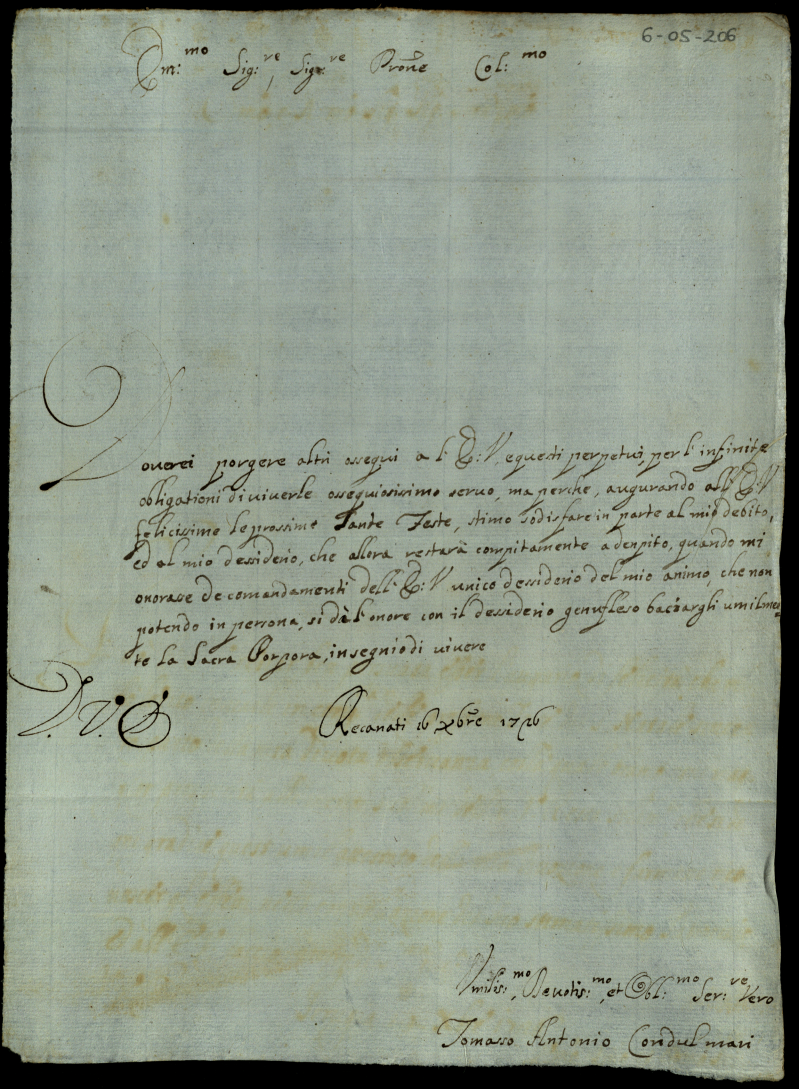 6-05-206
Em:mo Sig:re, Sigre Prone Col:mo
Doverei porgere altri ossequi a l'E:V, e questi perpetui, per l'infinite
obligationi di viverle ossequiosissimo servo, ma perche, augurando all'E:V
felicissime le prossime Sante Feste, stimo sodisfare in parte al mio debito,
ed al mio dessiderio, che allora restarà compitamente adenpito, quando mi
onorase de comandamenti dell'E:V unico dessiderio del mio animo, che non
potendo in persona, si dà l'onore con il dessiderio genufleso baciargli umilmen=
te la Sacra Porpora, in segnio di vivere
D. V. E
Recanati 16 Xbre 1726
Umilis:mo, Devotis:mo, et Obl:mo Ser:re Vero
Tomasso Antonio Condulmari